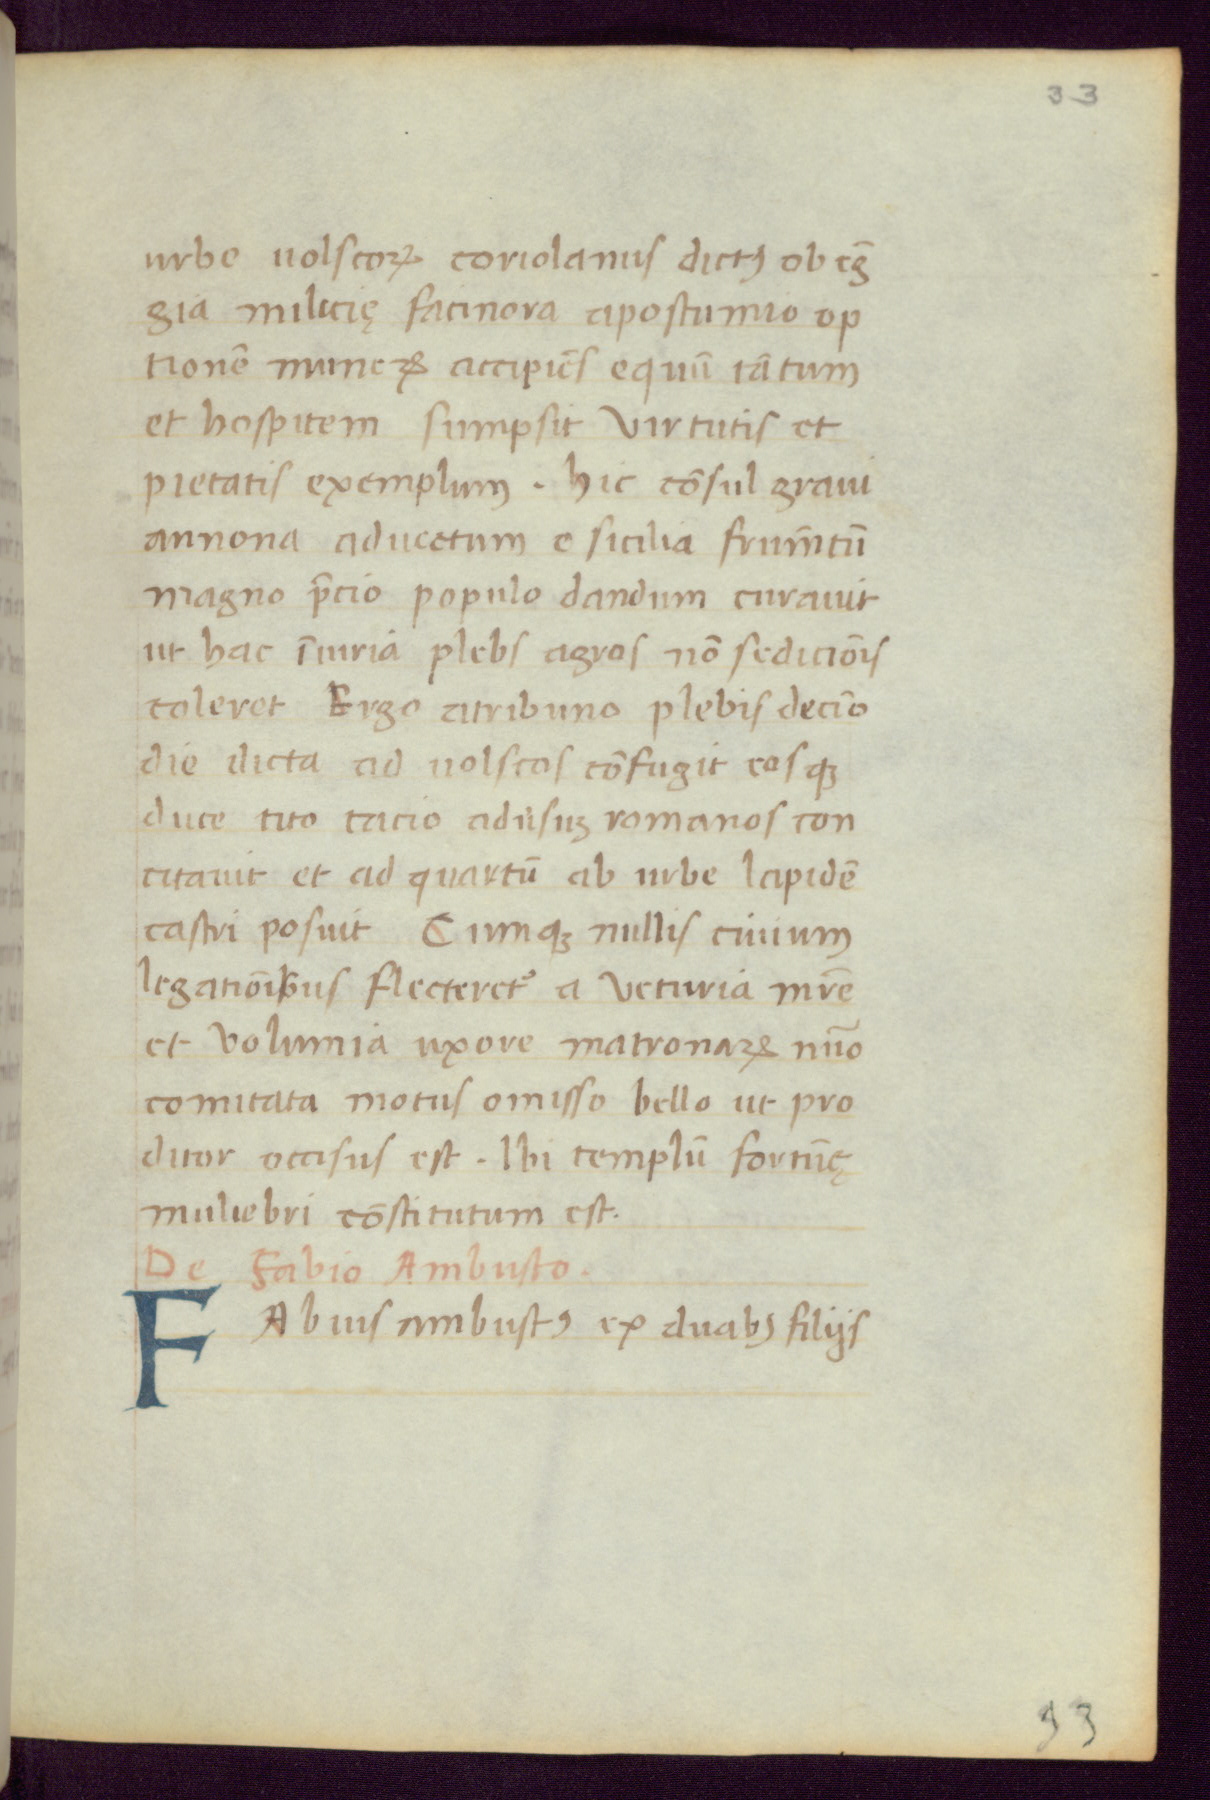 33
urbe uolscoꝝ coriolanus dictꝯ ob eg̅
gia milicię facinora apostumio op
tionē muneꝝ accipiēs equū tātum
et hospitem sumpsit virtutis et
pietatis exemplum . hic cōsul graui
annona aduectum e sicilia frum̄tū
magno p̄cio populo dandum curauit
ut hac īiuria plebs agros nō sediciōis
coleret Ergo atribuno plebis decio
die dicta ad uolscos cōfugit eosqꝫ
duce tito tacio adūsuꝫ romanos con
citauit et ad quartū ab urbe lapidē
castri posuit Cumqꝫ nullis ciuium
legatiōibus flecteret᷑ a veturia mr̄e
et volumia uxore matronaꝝ nu̅o
comitata motus omisso bello ut pro
ditor occisus est . Ibi templū fortūę
muliebri cōstitutum est.
De Fabio Ambusto .
FAbius ambustꝯ ex duabꝫ filijs
33